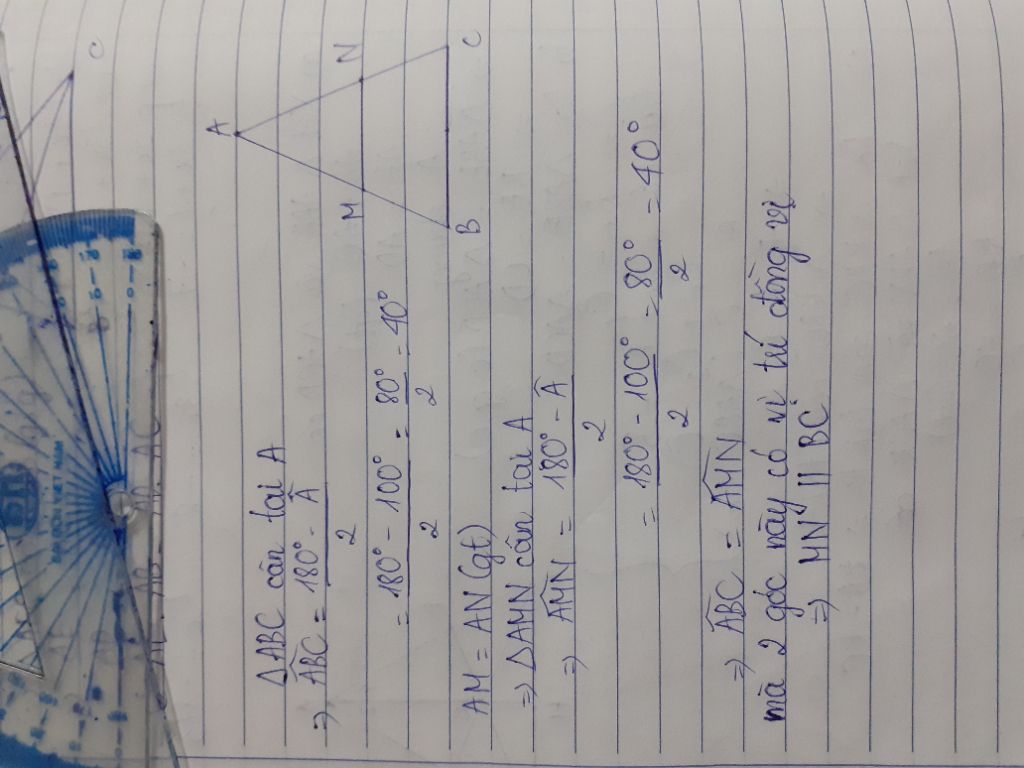 C
A
M
N
B
C
ΔABC cân tai A
=> ABC^ = (180° - Â) / 2
= (180° - 100°) / 2 = 80° / 2 = 40°
AM = AN (gt)
=> ΔAMN cân tai A
=> AMN^ = (180° - Â) / 2
= (180° - 100°) / 2 = 80° / 2 = 40°
=> ABC^ = AMN^
mà 2 góc này có vị trí đồng vị
=> MN // BC
170
180
10
0